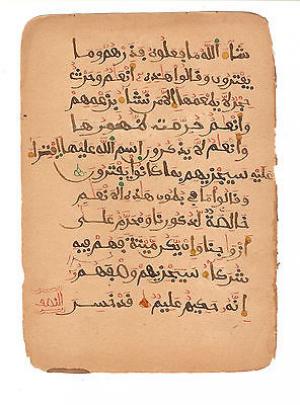 شاء الله ما فعلوه فذرهم وما
يفترون وقالوا هذه أنعم وحرث
حجر لا يطعمها إلا من نشاء بزعمهم
وأنعم حرمت ظهورها
وأنعم لا يذكرون اسم الله عليها افتراء
عليه سيجزيهم بما كانوا يفترون
وقالوا ما في بطون هذه الأنعم
خالصة لذكورنا ومحرم على
أزواجنا وإن يكن ميتة فهم فيه
شركاء سيجزيهم وصفهم
إنه حكيم عليم قد خسر